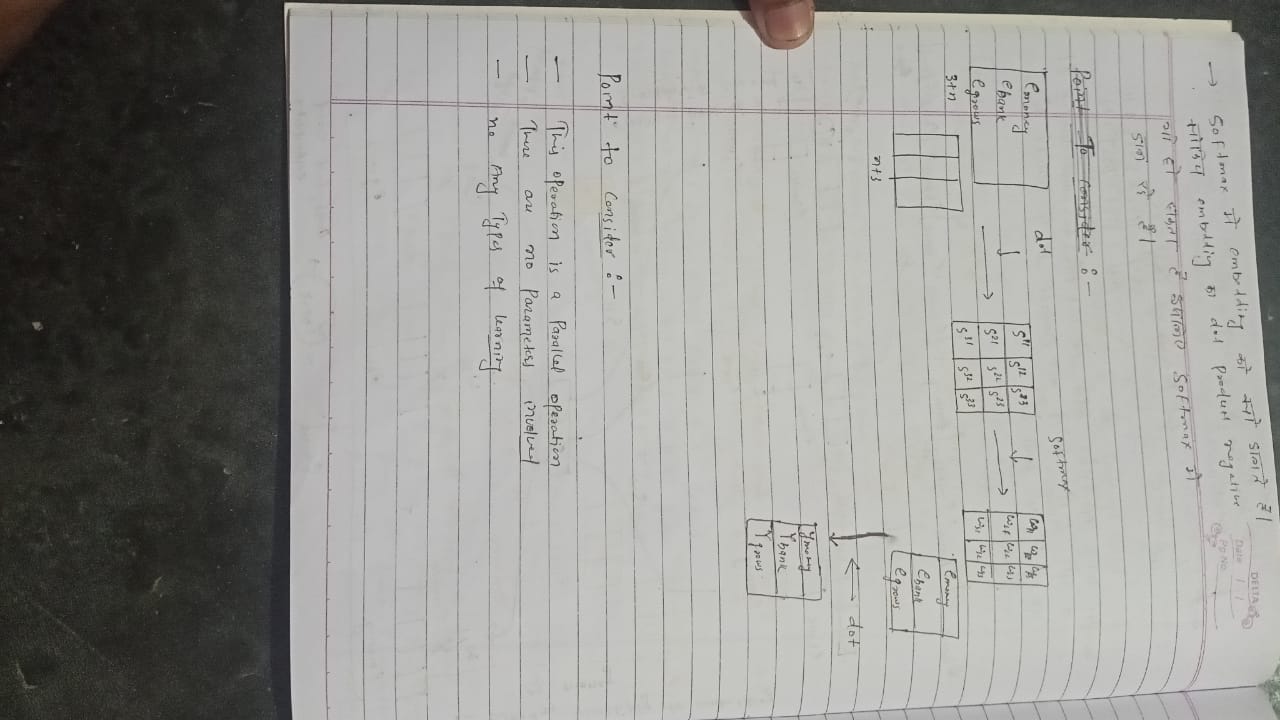 DELTA
Date / /
Pg No
→ Softmax में embedding को क्यों डालते है।
क्योंकि embdding का dot Product negative
भी हो सकता है इसलिए Softmax में
डाल रहे हैं।
Point To Consider :-
emoney
ebank
egrows
3+n
n+3
dot
S11 S12 S13
S21 S22 S23
S31 S32 S33
Softmax
W21 W22 W23
W31 W32 W33
emoney
ebank
egrows
dot
Ymoney
Ybank
Ygrows
Point to Consider :-
— This operation is a Parallel operation
— There are no Parameters involved
— no Any Types of learning